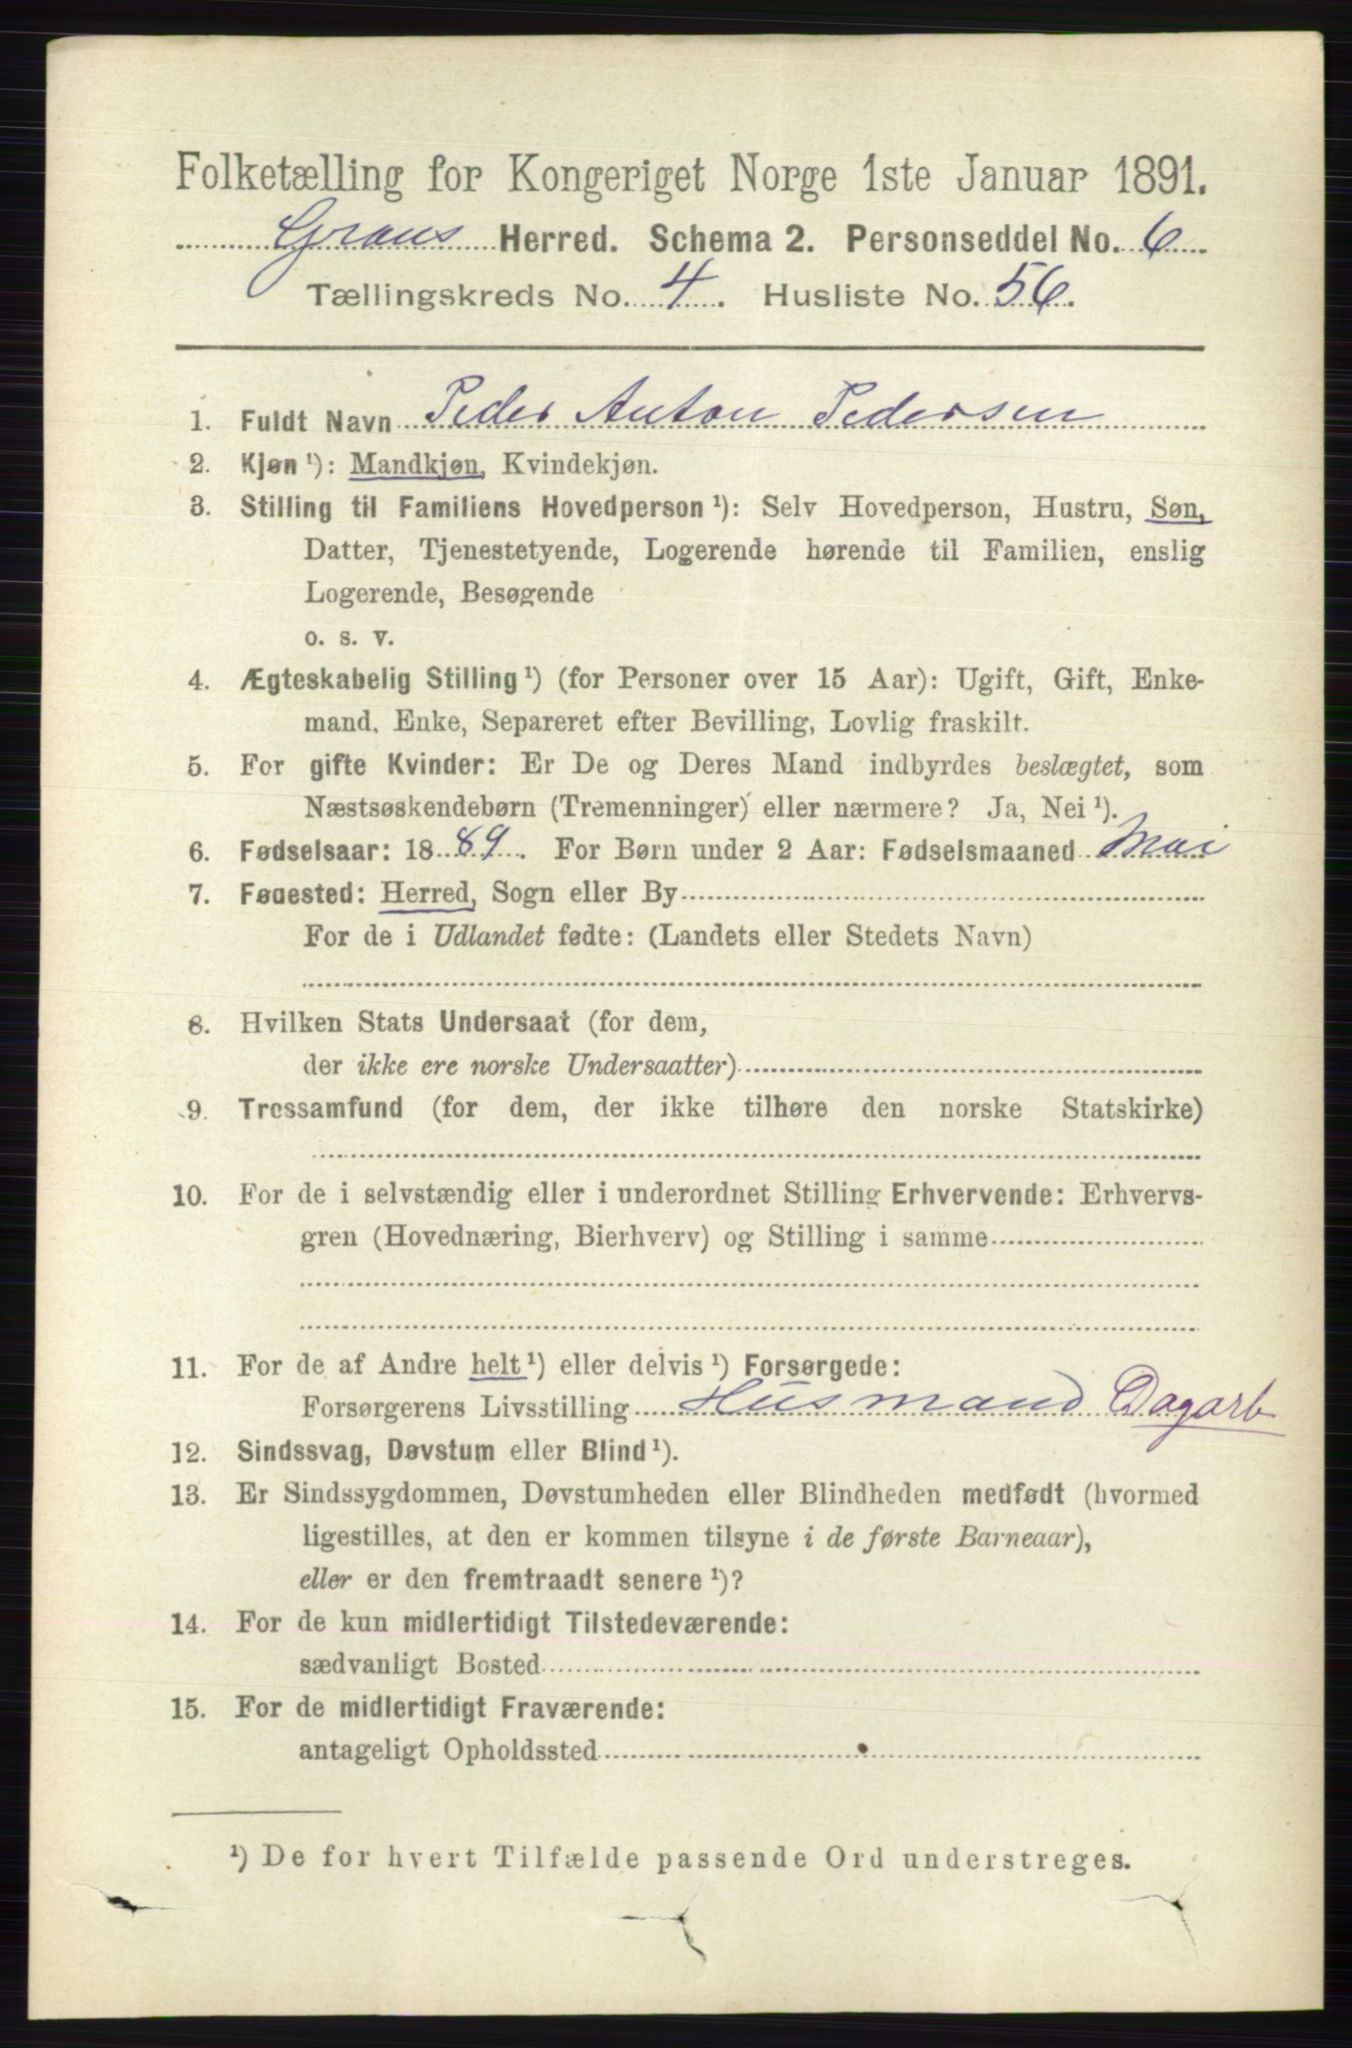 Folketælling for Kongeriget Norge 1ste Januar 1891.
Grans Herred. Schema 2. Personseddel No. 6
Tællingskreds No. 4. Husliste No. 56.
1. Fuldt Navn Peder Anton Pedersen
2. Kjøn ¹): Mandkjøn, Kvindekjøn.
3. Stilling til Familiens Hovedperson ¹): Selv Hovedperson, Hustru, Søn,
Datter, Tjenestetyende, Logerende hørende til Familien, enslig
Logerende, Besøgende
o. s. v.
4. Ægteskabelig Stilling ¹) (for Personer over 15 Aar): Ugift, Gift, Enke-
mand, Enke, Separeret efter Bevilling, Lovlig fraskilt.
5. For gifte Kvinder: Er De og Deres Mand indbyrdes beslægtet, som
Næstsøskendebørn (Tremenninger) eller nærmere? Ja, Nei ¹).
6. Fødselsaar: 1889. For Børn under 2 Aar: Fødselsmaaned Mai
7. Fødested: Herred, Sogn eller By
For de i Udlandet fødte: (Landets eller Stedets Navn)
8. Hvilken Stats Undersaat (for dem,
der ikke ere norske Undersaatter)
9. Trossamfund (for dem, der ikke tilhøre den norske Statskirke)
10. For de i selvstændig eller i underordnet Stilling Erhvervende: Erhvervs-
gren (Hovednæring, Bierhverv) og Stilling i samme
11. For de af Andre helt ¹) eller delvis ¹) Forsørgede:
Forsørgerens Livsstilling Husmand Dagarb
12. Sindssvag, Døvstum eller Blind ¹).
13. Er Sindssygdommen, Døvstumheden eller Blindheden medfødt (hvormed
ligestilles, at den er kommen tilsyne i de første Barneaar),
eller er den fremtraadt senere ¹)?
14. For de kun midlertidigt Tilstedeværende:
sædvanligt Bosted
15. For de midlertidigt Fraværende:
antageligt Opholdssted
¹) De for hvert Tilfælde passende Ord understreges.